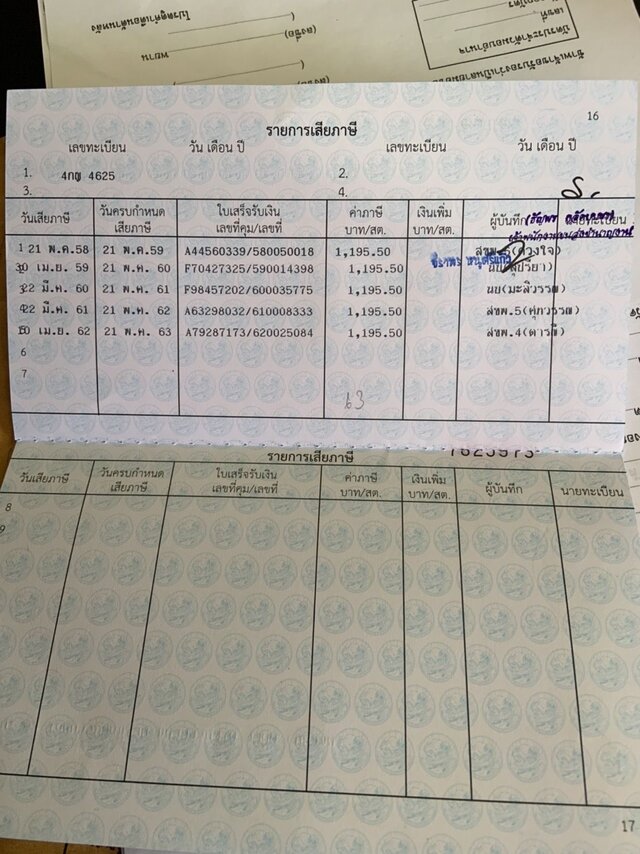 ไปรดดูคำเตือนด้านหลัง
พยาน
(ลงชื่อ)
เลขที่
16
รายการเสียภาษี
เลขทะเบียน วัน เดือน ปี เลขทะเบียน วัน เดือน ปี
1. 4กญ 4625 2.
3. 4.
วันเสียภาษี วันครบกำหนดเสียภาษี ใบเสร็จรับเงินเลขที่คุม/เลขที่ ค่าภาษีบาท/สต. เงินเพิ่มบาท/สต. ผู้บันทึก นายทะเบียน
1 21 พ.ค.58 21 พ.ค.59 A44560339/580050018 1,195.50 สขพ.5(ดวงใจ)
เม.ย. 59 21 พ.ค. 60 F70427325/590014398 1,195.50
22 มี.ค. 60 21 พ.ค. 61 F98457202/600035775 1,195.50 นย(มะลิวรรณ)
22 มี.ค. 61 21 พ.ค. 62 A63298032/610008333 1,195.50 สขพ.5(ศุภวรรณ)
เม.ย. 62 21 พ.ค. 63 A79287173/620025084 1,195.50 สขพ.4(ดารณี)
6
7
63
7625973
รายการเสียภาษี
วันเสียภาษี วันครบกำหนดเสียภาษี ใบเสร็จรับเงินเลขที่คุม/เลขที่ ค่าภาษีบาท/สต. เงินเพิ่มบาท/สต. ผู้บันทึก นายทะเบียน
8
9
17